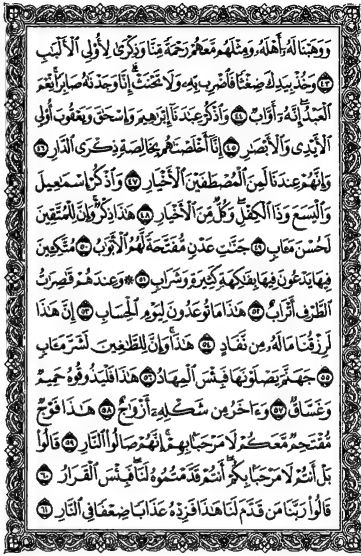 وَوَهَبْنَا لَهُۥٓ أَهْلَهُۥ وَمِثْلَهُم مَّعَهُمْ رَحْمَةً مِّنَّا وَذِكْرَىٰ لِأُو۟لِى ٱلْأَلْبَٰبِ
۝٤٣ وَخُذْ بِيَدِكَ ضِغْثًا فَٱضْرِب بِّهِۦ وَلَا تَحْنَثْ ۗ إِنَّا وَجَدْنَٰهُ صَابِرًا ۚ نِّعْمَ
ٱلْعَبْدُ ۖ إِنَّهُۥٓ أَوَّابٌ ۝٤٤ وَٱذْكُرْ عِبَٰدَنَآ إِبْرَٰهِيمَ وَإِسْحَٰقَ وَيَعْقُوبَ أُو۟لِى
ٱلْأَيْدِى وَٱلْأَبْصَٰرِ ۝٤٥ إِنَّآ أَخْلَصْنَٰهُم بِخَالِصَةٍ ذِكْرَى ٱلدَّارِ ۝٤٦
وَإِنَّهُمْ عِندَنَا لَمِنَ ٱلْمُصْطَفَيْنَ ٱلْأَخْيَارِ ۝٤٧ وَٱذْكُرْ إِسْمَٰعِيلَ
وَٱلْيَسَعَ وَذَا ٱلْكِفْلِ ۖ وَكُلٌّ مِّنَ ٱلْأَخْيَارِ ۝٤٨ هَٰذَا ذِكْرٌ ۚ وَإِنَّ لِلْمُتَّقِينَ
لَحُسْنَ مَـَٔابٍ ۝٤٩ جَنَّٰتِ عَدْنٍ مُّفَتَّحَةً لَّهُمُ ٱلْأَبْوَٰبُ ۝٥٠ مُتَّكِـِٔينَ
فِيهَا يَدْعُونَ فِيهَا بِفَٰكِهَةٍ كَثِيرَةٍ وَشَرَابٍ ۝٥١ ۞ وَعِندَهُمْ قَٰصِرَٰتُ
ٱلطَّرْفِ أَتْرَابٌ ۝٥٢ هَٰذَا مَا تُوعَدُونَ لِيَوْمِ ٱلْحِسَابِ ۝٥٣ إِنَّ هَٰذَا
لَرِزْقُنَا مَا لَهُۥ مِن نَّفَادٍ ۝٥٤ هَٰذَا ۚ وَإِنَّ لِلطَّٰغِينَ لَشَرَّ مَـَٔابٍ
۝٥٥ جَهَنَّمَ يَصْلَوْنَهَا فَبِئْسَ ٱلْمِهَادُ ۝٥٦ هَٰذَا فَلْيَذُوقُوهُ حَمِيمٌ
وَغَسَّاقٌ ۝٥٧ وَءَاخَرُ مِن شَكْلِهِۦٓ أَزْوَٰجٌ ۝٥٨ هَٰذَا فَوْجٌ
مُّقْتَحِمٌ مَّعَكُمْ ۖ لَا مَرْحَبًۢا بِهِمْ ۚ إِنَّهُمْ صَالُوا۟ ٱلنَّارِ ۝٥٩ قَالُوا۟
بَلْ أَنتُمْ لَا مَرْحَبًۢا بِكُمْ ۖ أَنتُمْ قَدَّمْتُمُوهُ لَنَا ۖ فَبِئْسَ ٱلْقَرَارُ ۝٦٠
قَالُوا۟ رَبَّنَا مَن قَدَّمَ لَنَا هَٰذَا فَزِدْهُ عَذَابًا ضِعْفًا فِى ٱلنَّارِ ۝٦١